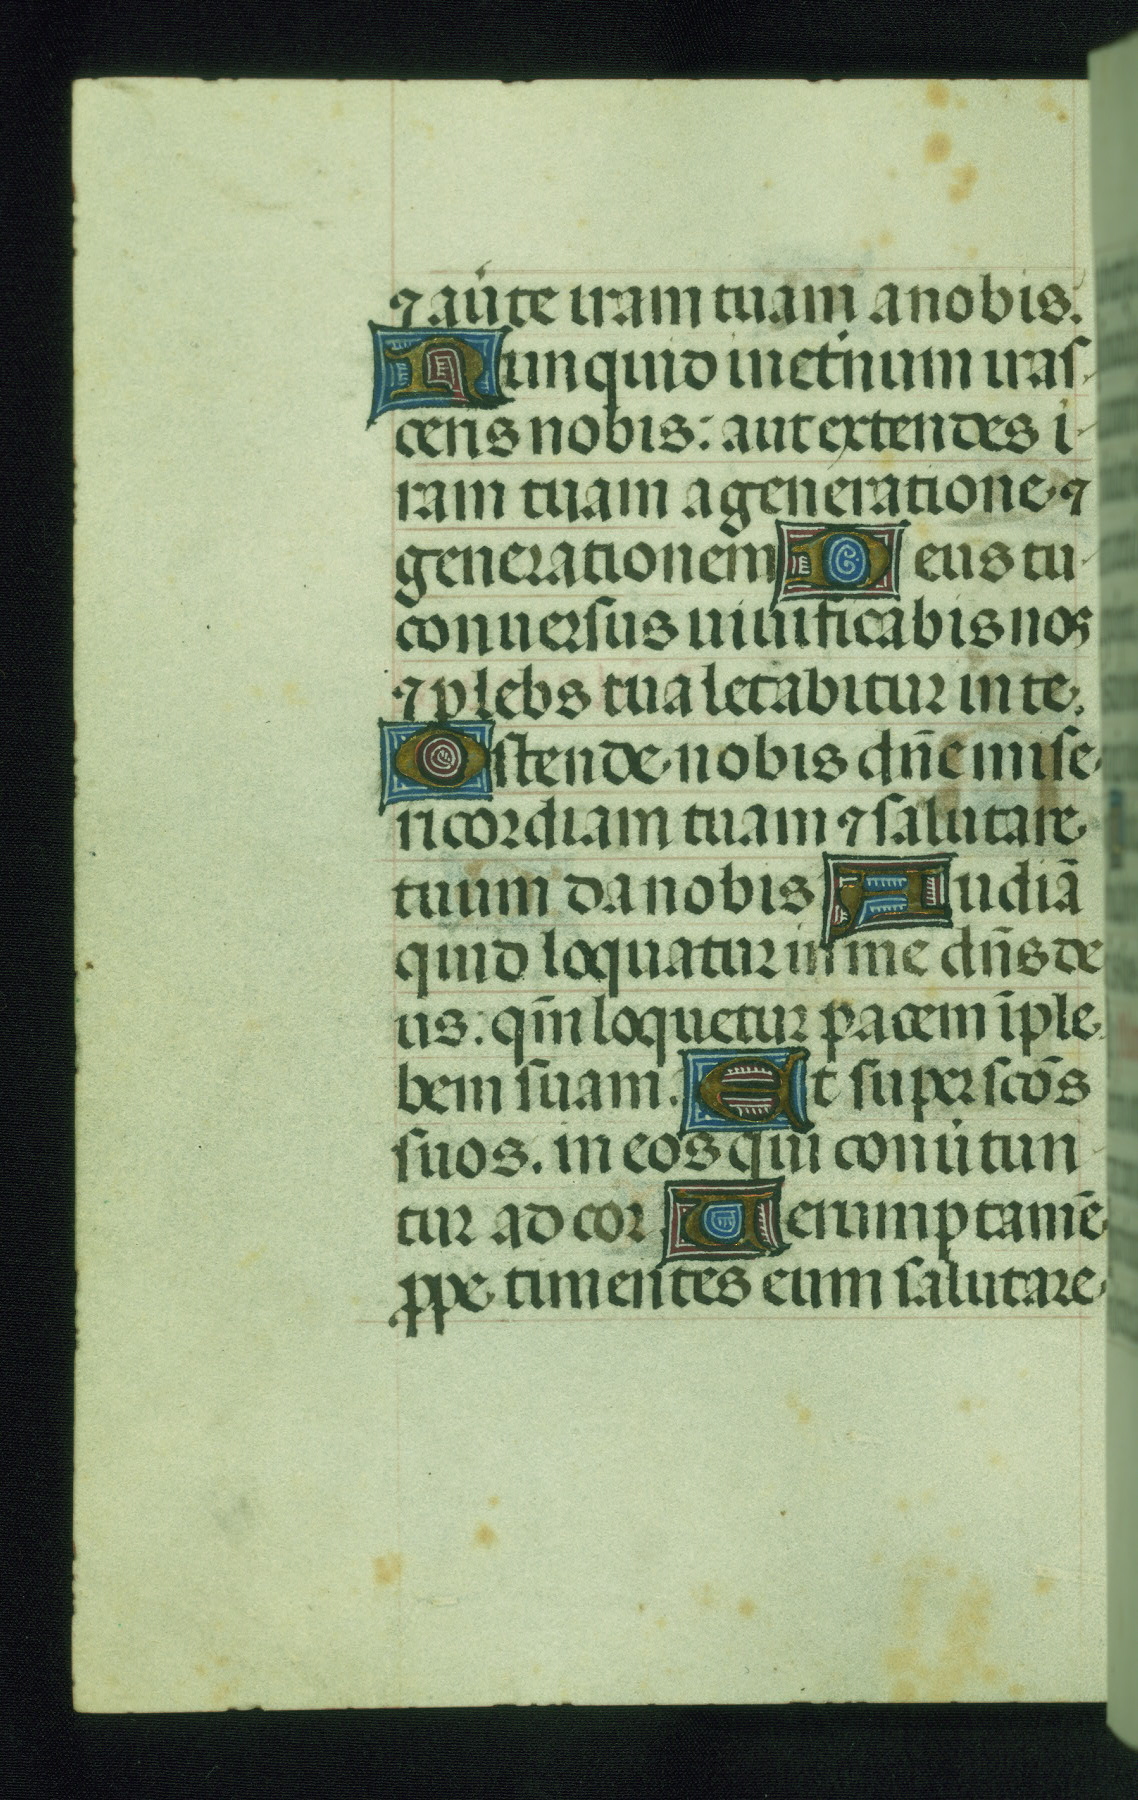 ⁊ au̇te iram tuam a nobis.
Nunquid in et̄num iras-
ceris nobis: aut extendes i-
ram tuam a generatione ⁊
generationem Deus tu
conuersus uiuificabis nos
⁊ plebs tua letabitur in te.
Ostende nobis dn̄e mise-
ricordiam tuam ⁊ salutare
tuum da nobis Audiā
quid loquatur in me dn̄s de
us: qm̄ loquetur pacem ī ple-
bem suam. Et super scōs
suos. in eos qui conu̇tun-
tur ad cor Uerumptamē
ꝓpe timentes eum salutare